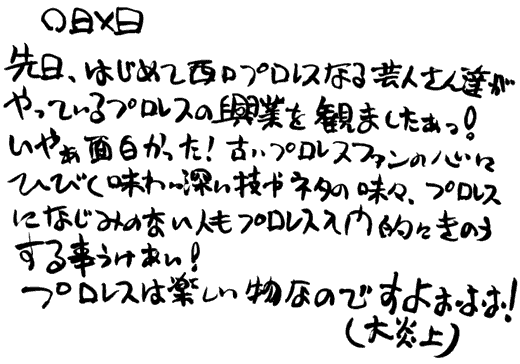 〇日×日
先日、はじめて西口プロレスなる芸人さん達が
やっているプロレスの興業を観ましたぁっ!
いやぁ面白かった!古いプロレスファンの心に
ひびく味わい深い技やネタの味々、プロレス
になじみのない人もプロレス入門的に
する事うけあい!
プロレスは楽しい物なのですよぉ!
(大炎上)